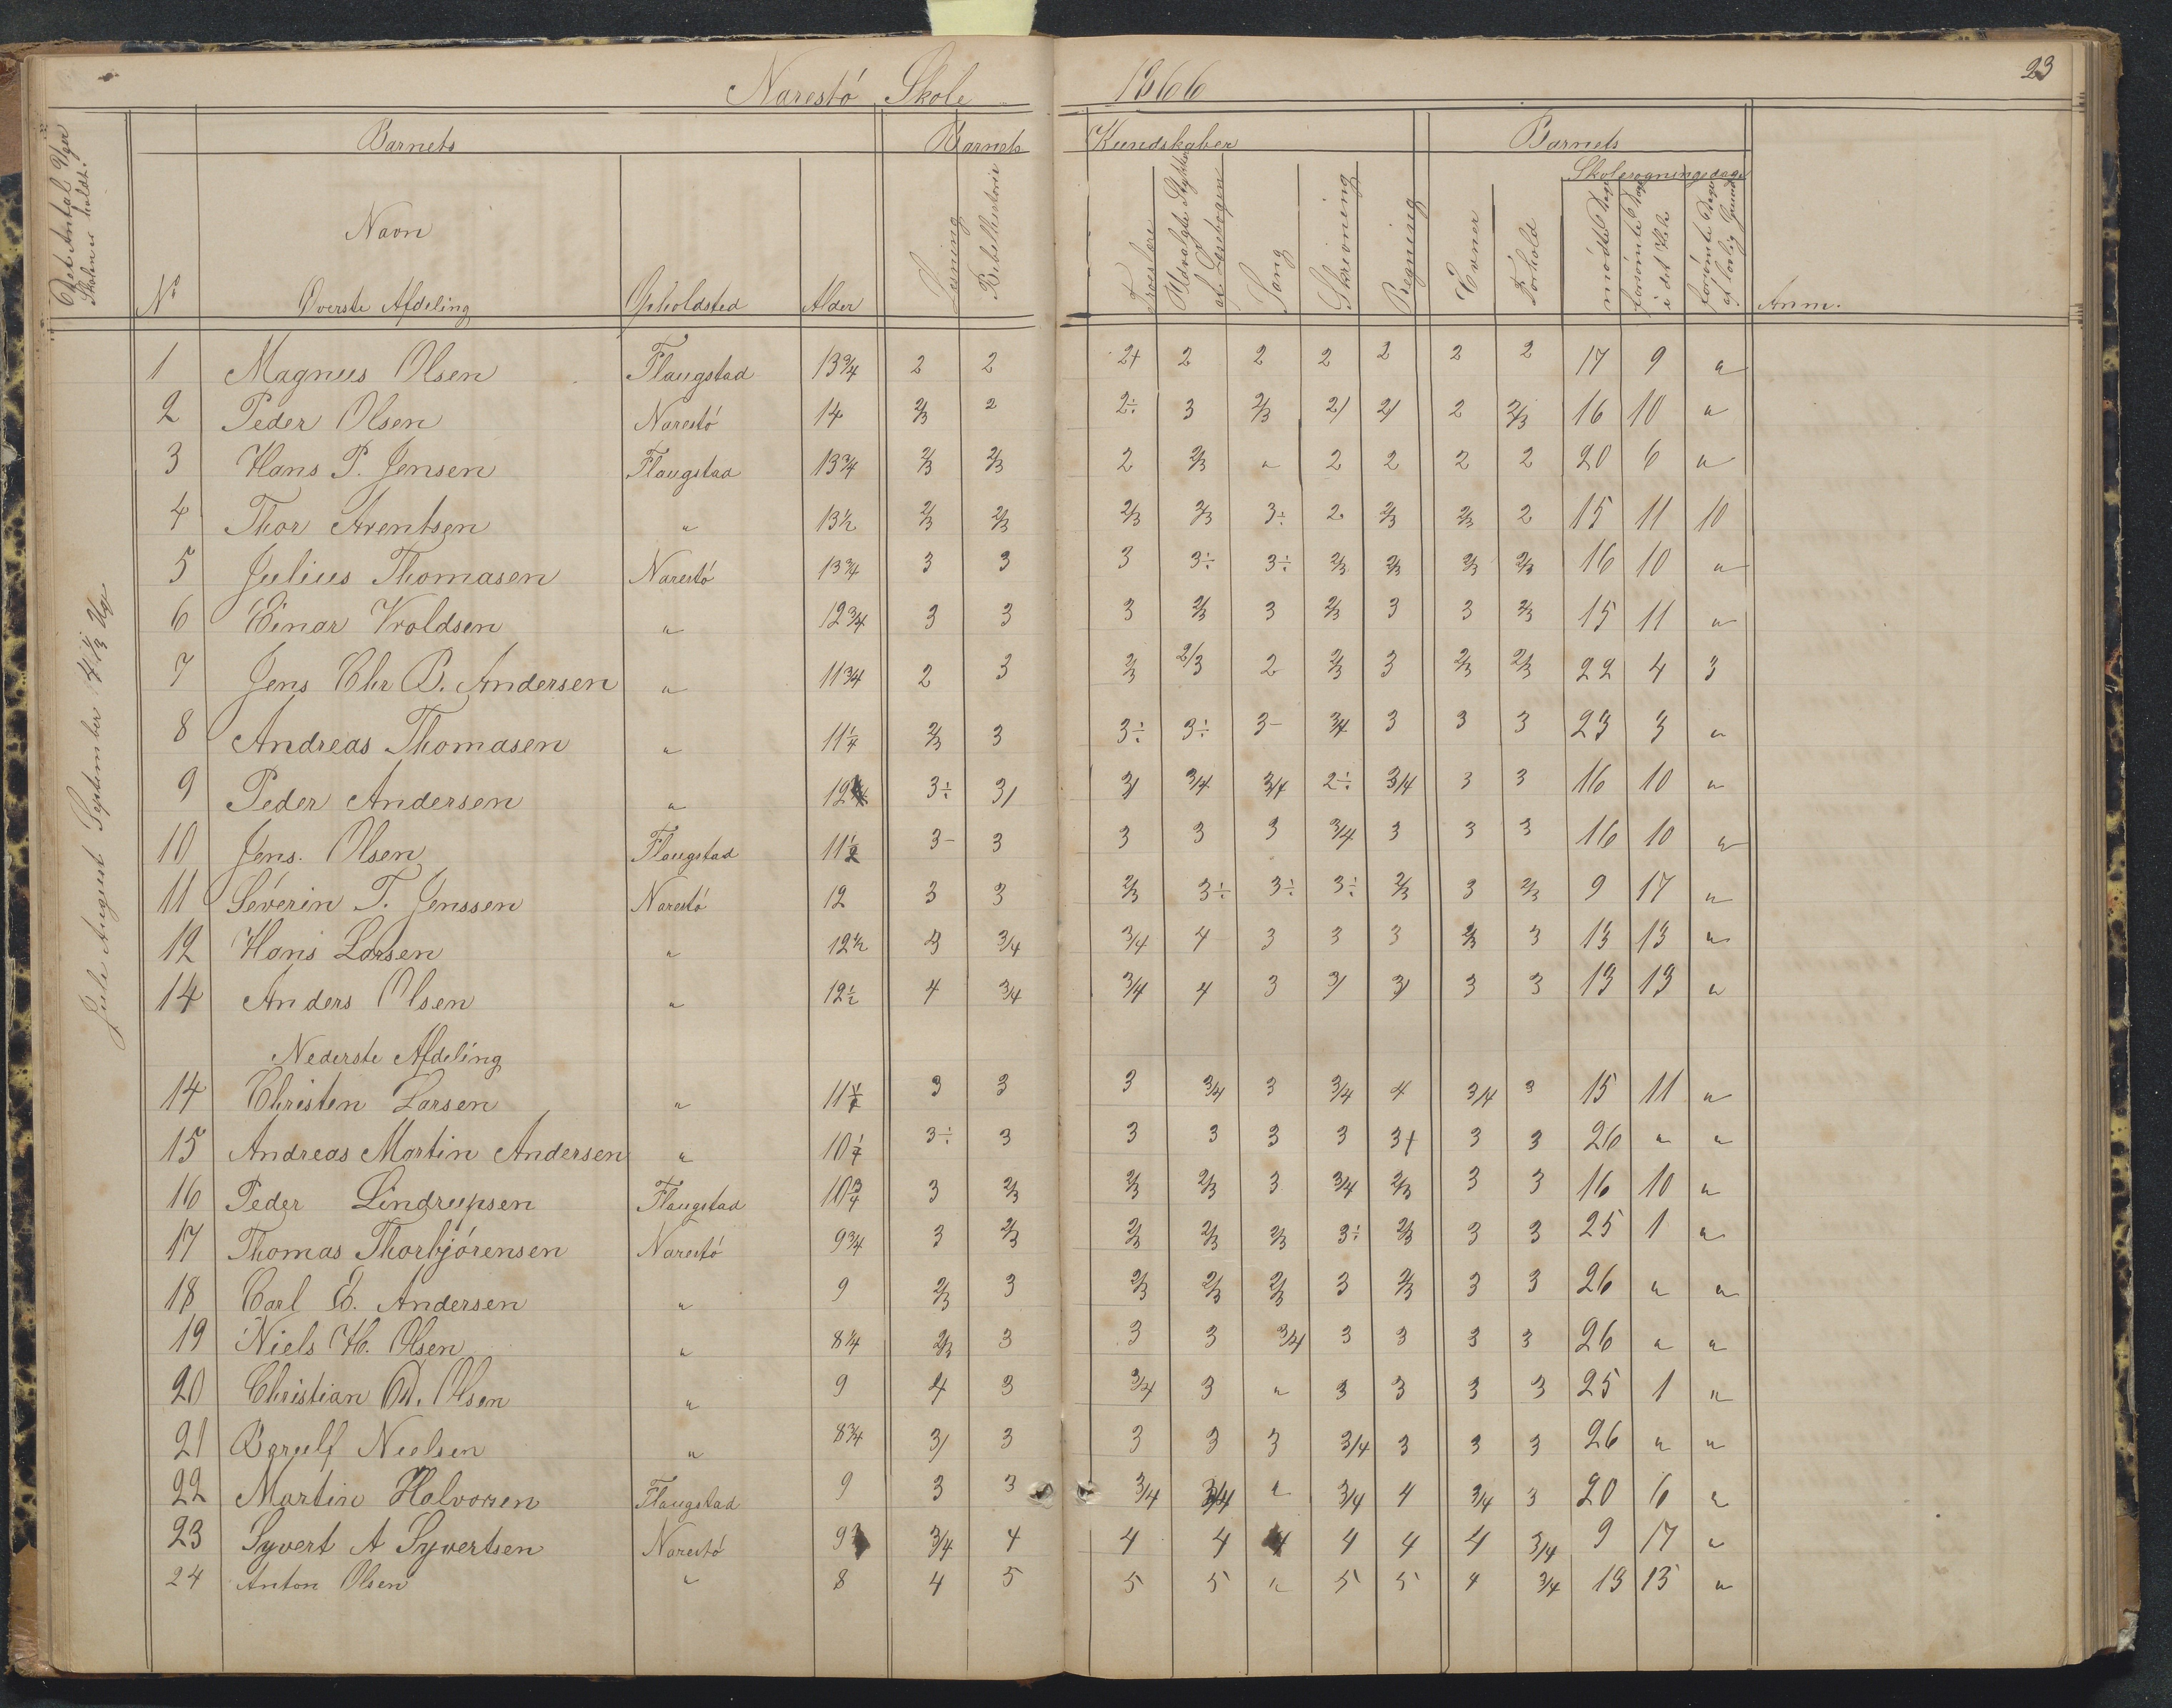 Narestö Skole 1866 23
Det Antal Uger Skolen er holdt.
Barnets Barnets Kundskaber Barnets
Skolesøgningsdage
No Navn Øverste Afdeling Opholdsted Alder Læsning Bibelhistorie Troeslære Udvalgte Stykker af Læsebogen Sang Skrivning Regning Evner Forhold mødte Dage forsømte Dage i det Hele forsømte Dage af lovlig Grund Anm.
Juli August September 4 1/3 Uge
1 Magnus Olsen Flaugstad 13 3/4 2 2 2+ 2 2 2 2 2 2 17 9 "
2 Peder Olsen Narestö 14 2/3 2 2÷ 3 2/3 2/ 2/ 2 2/3 16 10 "
3 Hans P. Jensen Flaugstad 13 3/4 2/3 2/3 2 2/3 " 2 2 2 2 20 6 "
4 Thor Arentsen " 13 1/2 2/3 2/3 2/3 2/3 3÷ 2 2/3 2/3 2 15 11 10
5 Julius Thomasen Narestö 13 3/4 3 3 3 3÷ 3÷ 2/3 2/3 2/3 2/3 16 10 "
6 Einar Vroldsen " 12 3/4 3 3 3 2/3 3 2/3 3 3 2/3 15 11 "
7 Jens Chr B. Andersen " 11 3/4 2 3 2/3 2/3 2 2/3 3 2/3 2/3 22 4 3
8 Andreas Thomasen " 11 1/4 2/3 3 3÷ 3÷ 3- 3/4 3 3 3 23 3 "
9 Peder Andersen " 12 3÷ 3/ 3/ 3/4 3/4 2÷ 3/4 3 3 16 10 "
10 Jens. Olsen Flaugstad 11 1/2 3- 3 3 3 3 3/4 3 3 3 16 10 "
11 Séverin T. Jenssen Narestö 12 3 3 2/3 3÷ 3÷ 3÷ 2/3 3 2/3 9 17 "
12 Hans Larsen " 12 1/2 3/4 3/4 4 3 3 3 2/3 3 13 13 "
14 Anders Olsen " 12 1/2 4 3/4 3/4 4 3 3/ 3/ 3 3 13 13 "
Nederste Afdeling
14 Christen Larsen " 11 3 3 3 3/4 3 3/4 4 3/4 3 15 11 "
15 Andreas Martin Andersen " 10 3÷ 3 3 3 3 3 3+ 3 3 26 " "
16 Peder Lindrupsen Flaugstad 10 3/4 3 2/3 2/3 2/3 3 3/4 2/3 3 3 16 10 "
17 Thomas Thorbjörensen Narestö 9 3/4 3 2/3 2/3 2/3 2/3 3÷ 2/3 3 3 25 1 "
18 Carl E. Andersen " 9 2/3 3 2/3 2/3 2/3 3 2/3 3 3 26 " "
19 Niels H. Olsen " 8 1/4 2/3 3 3 3 3/4 3 3 3 3 26 " "
20 Christian Olsen " 9 4 3 3/4 3 " 3 3 3 3 25 1 "
21 Nielsen " 8 3/4 3/ 3 3 3 3 3/4 3 3 3 26 " "
22 Martin Halvorsen Flaugstad 9 3 3 3/4 3/4 " 3/4 4 3/4 3 20 6 "
23 Syvert A Syvertsen Narestö 9 3/4 4 4 4 4 4 4 4 3/4 9 17 "
24 Anton Olsen " 8 4 5 5 5 " 5 5 4 3/4 13 13 "